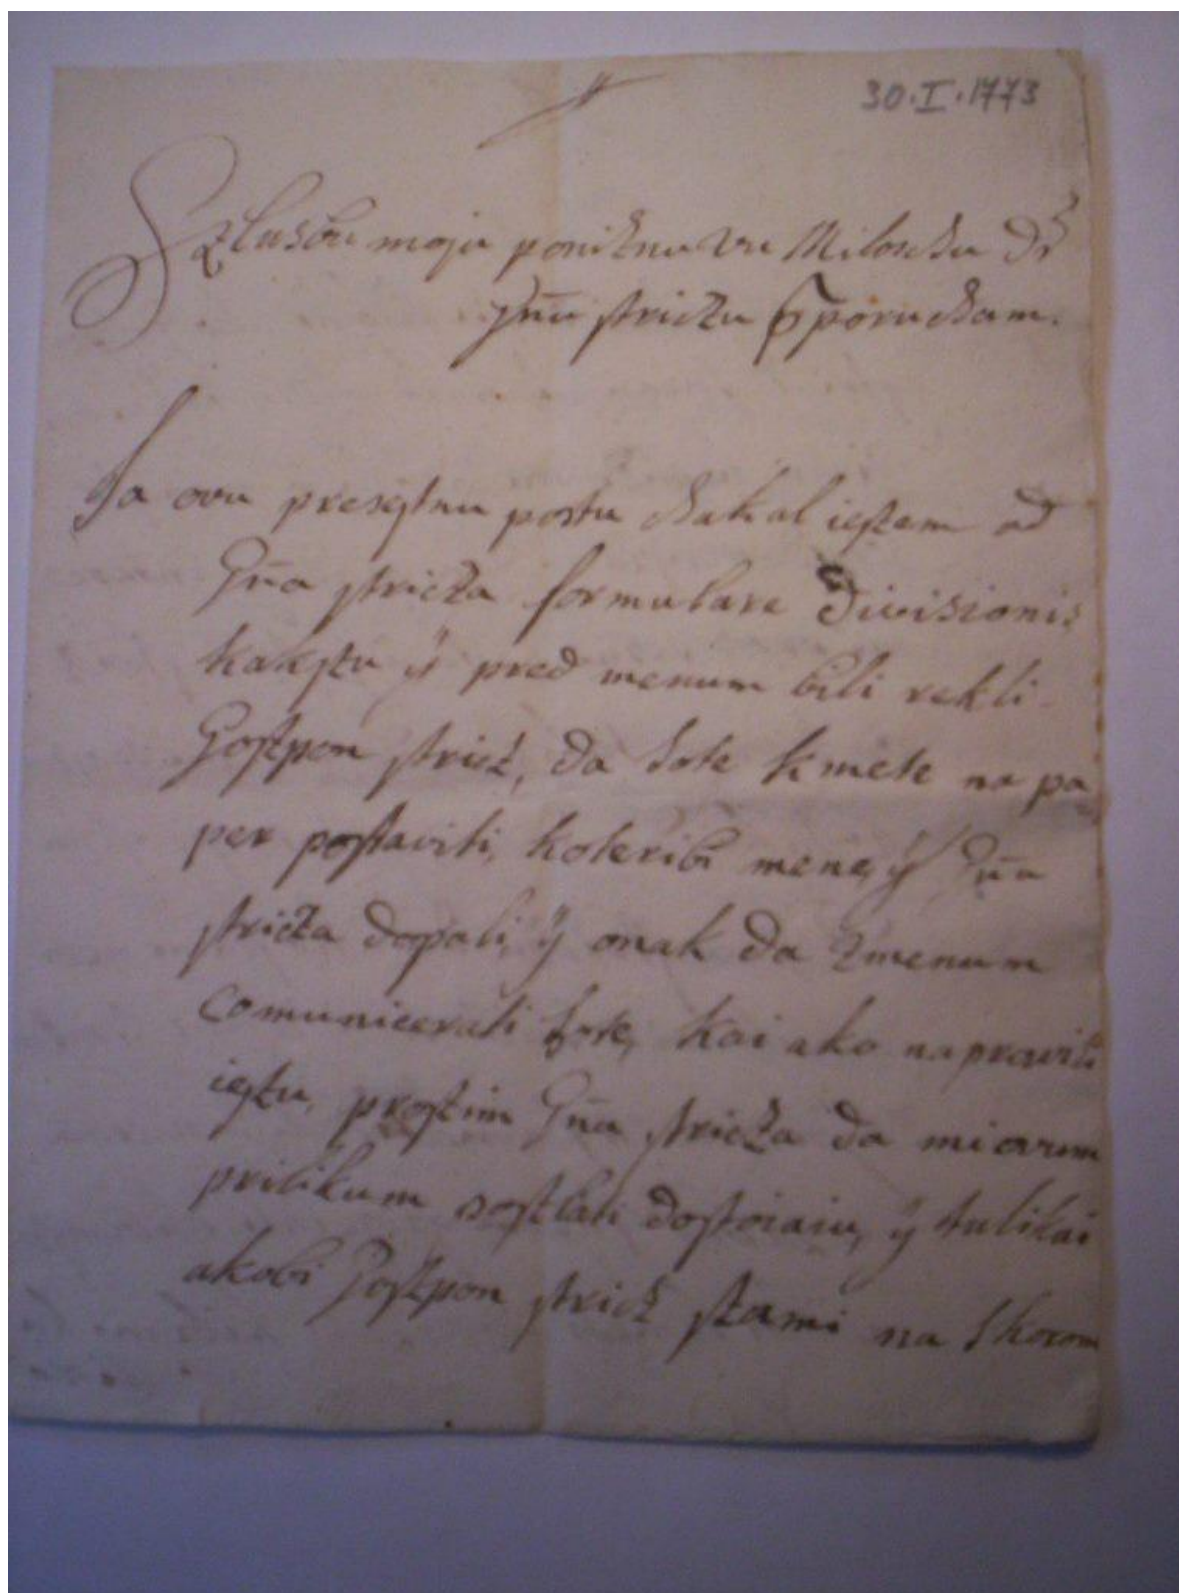 30·I·1773
Szlusbu moju poniznu vu Miloschu Dr
Gnu striczu preporucham.
Ja ovu presesztnu postu chakal iesztem od
Gna stricza formulare Divisionis
kaksztu ÿ pred menum bili rekli
Goszpon stricz, da hote kmete na pa
per posztaviti, koteribi mene, ÿ Gna
stricza dopali, ÿ onak da zmenum
comunicerati hote, kai ako napravili
iesztu, proszim Gna stricza da mi ovum
prilikum poszlati dosztoiaiu, ÿ tulikai
akobi Goszpon stricz szami na skorom